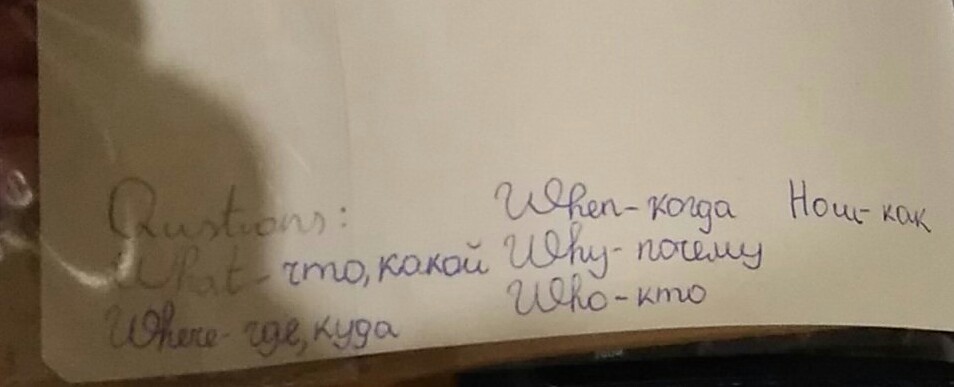 Qustions:
What - что, какой
Where - где, куда
When - когда
Why - почему
Who - кто
How - как